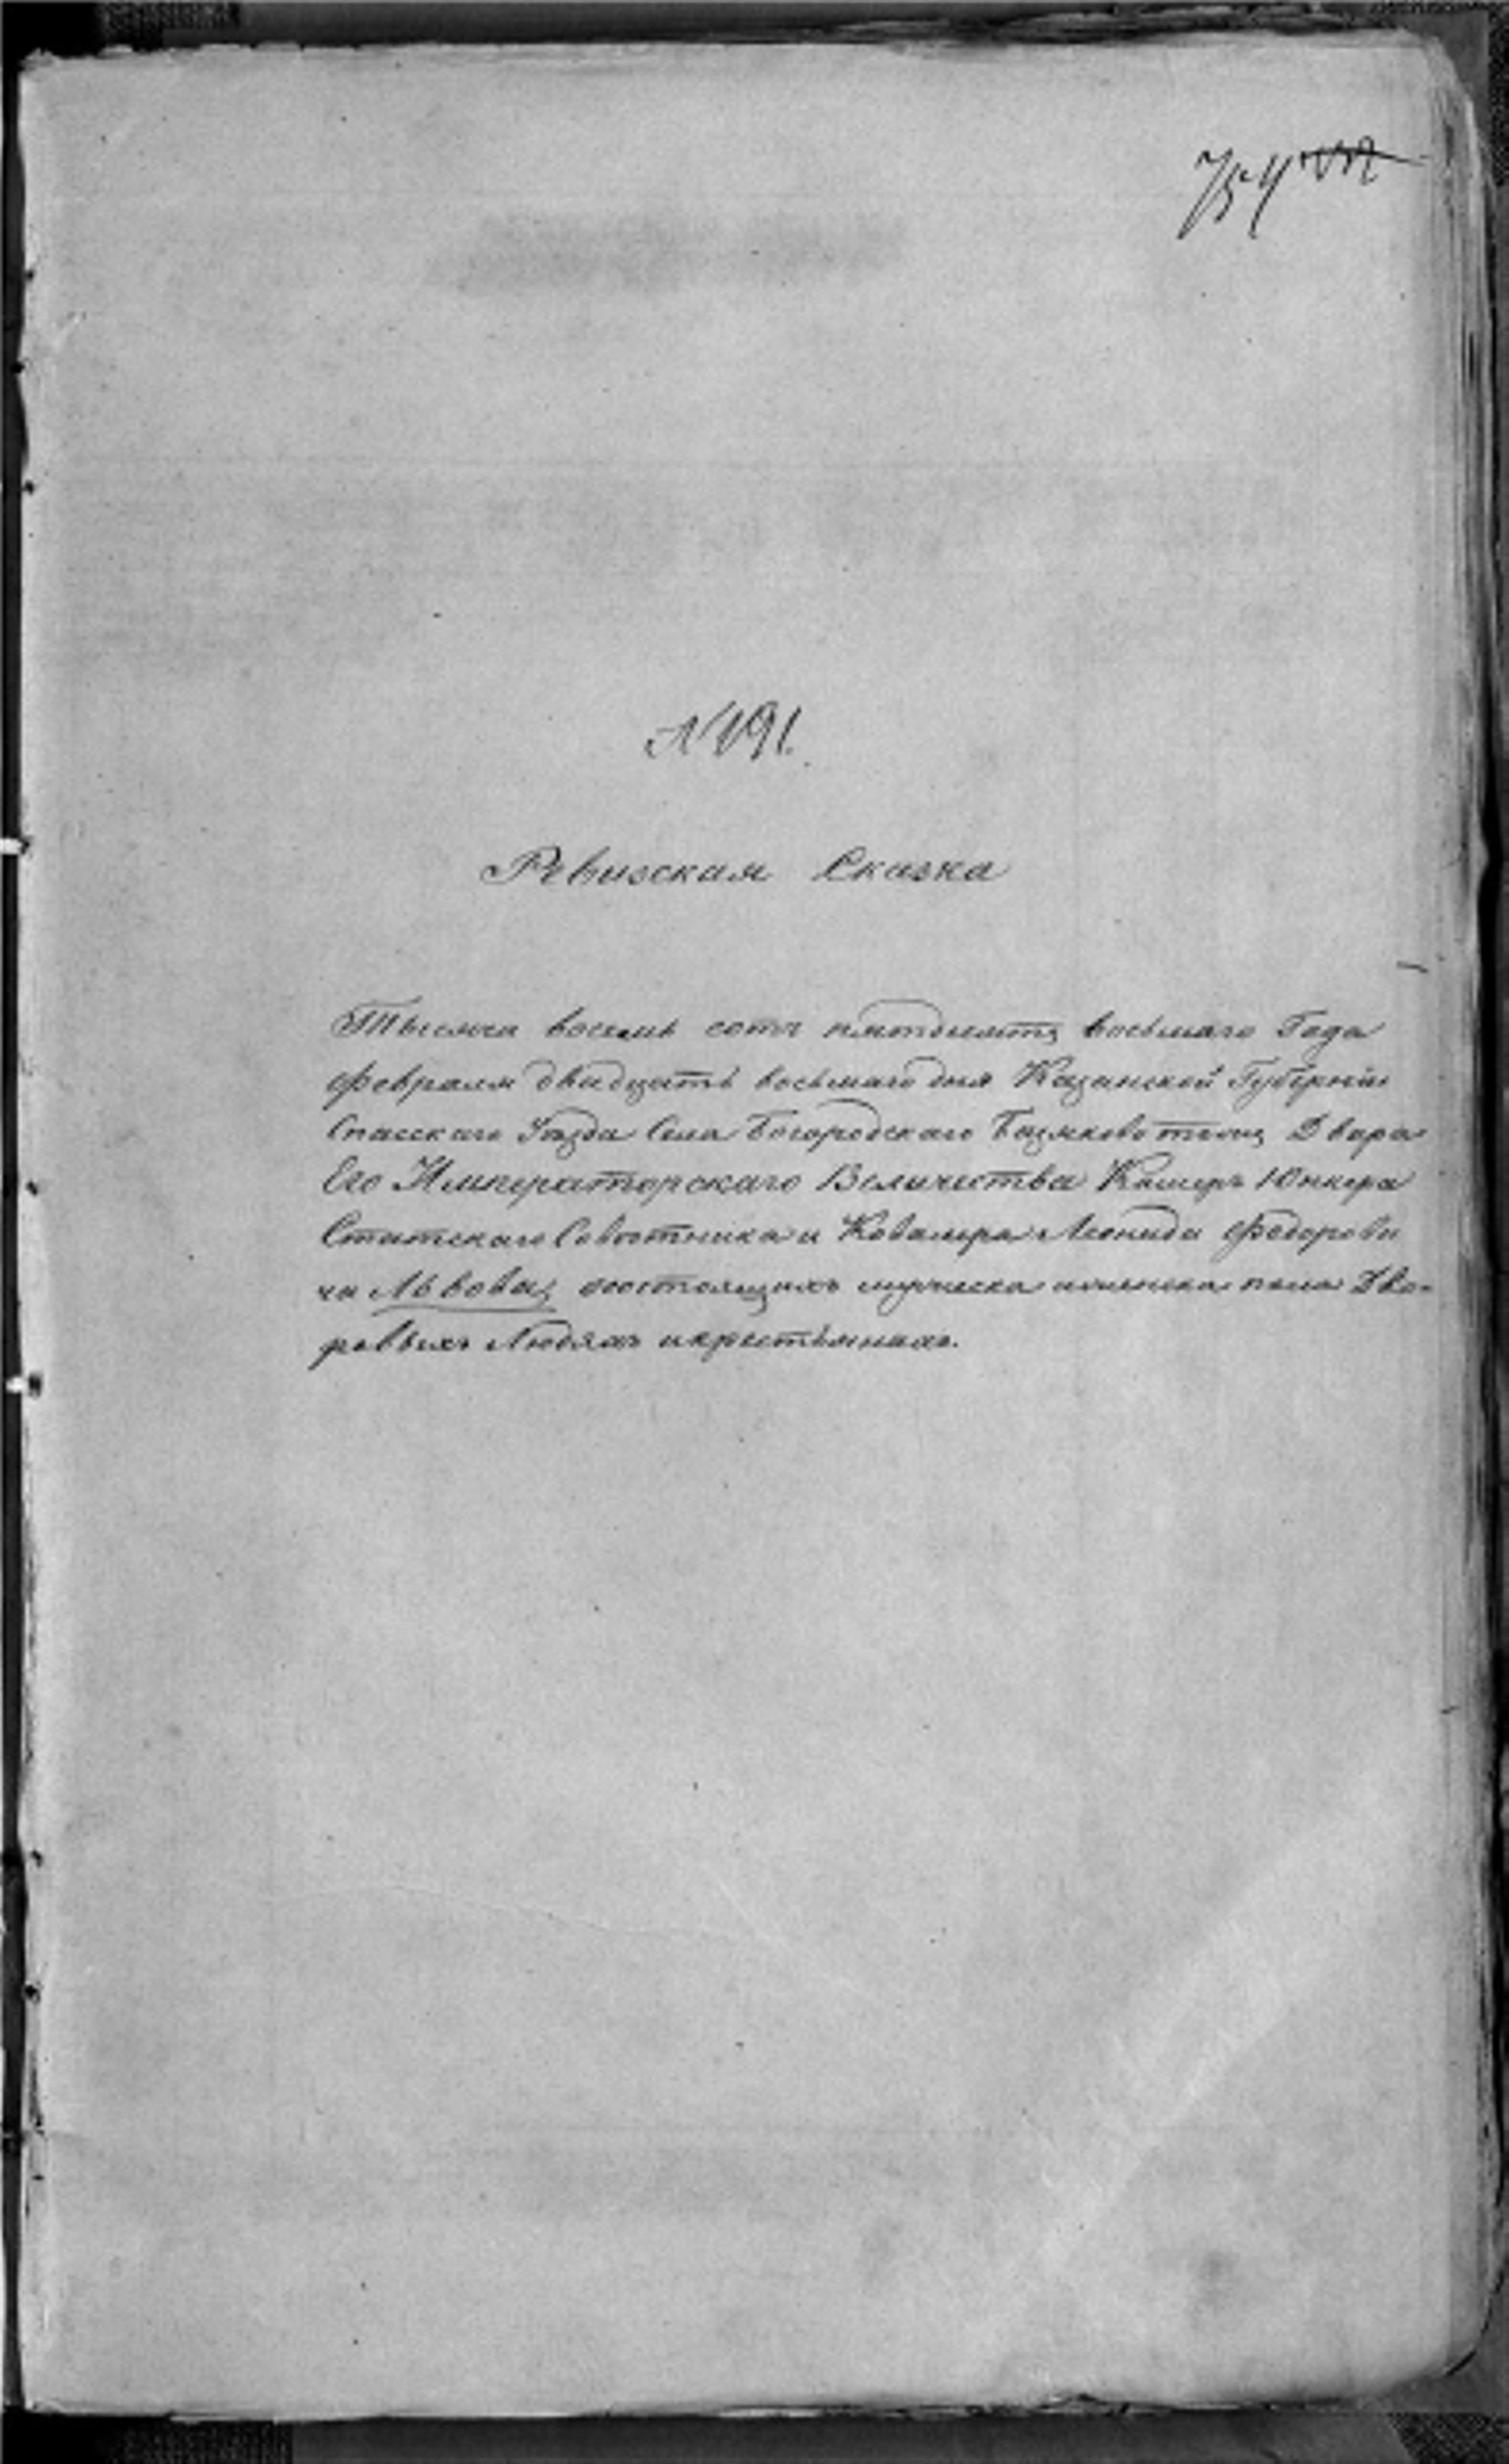 754
№ 191.
Ревизская Сказка
Тысяча восемь сотъ пятдесятъ восьмаго Года
февраля двадцать восьмаго дня Казанской Губерніи
Спасскаго Уѣзда Села Богородскаго Базяково тожъ Двора
Его Императорскаго Величества Камеръ Юнкера
Статскаго Совѣтника и Кавалера Леонида Федорови
ча Львова, о состоящихъ мужеска и женска пола Дво-
ровыхъ Людяхъ и крестьянахъ.